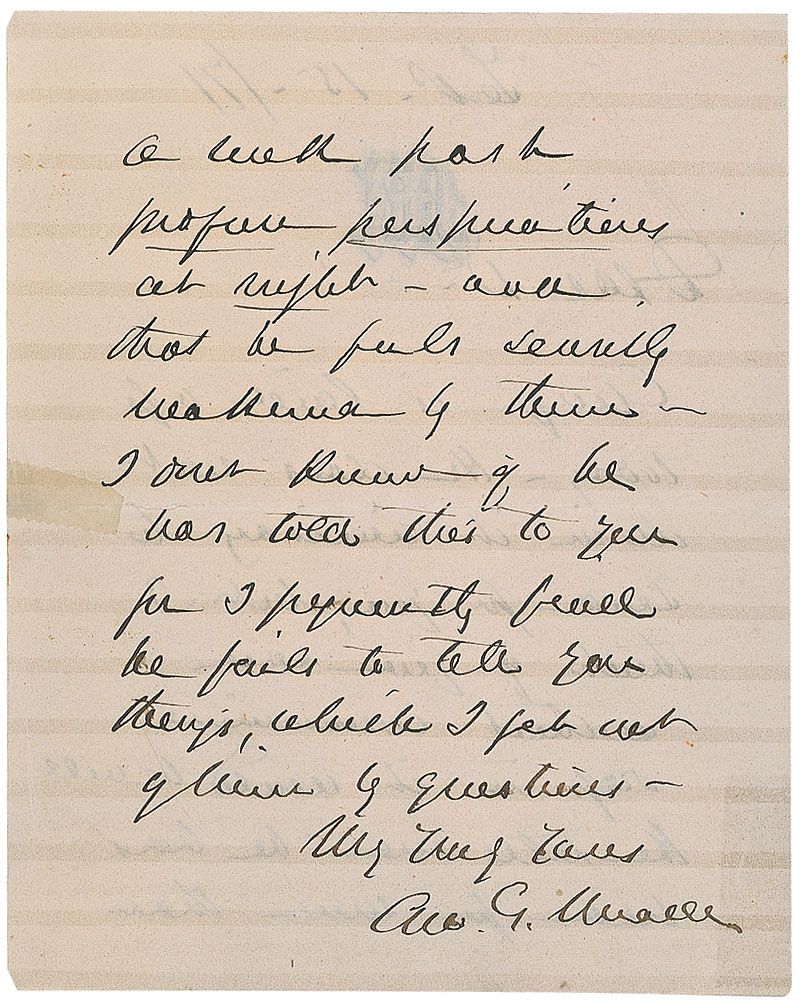 a week past,
profuse perspirations
at night – and
that he feels sensibly
weakened by them –
I don't know if he
has told this to you
for I frequently find
he fails to tell you
things, which I get out
of him by questions –
Very truly yours
Geo. G.